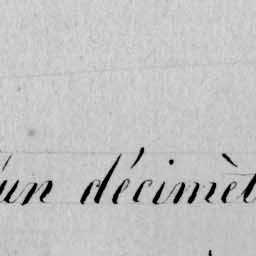 'un décimèt